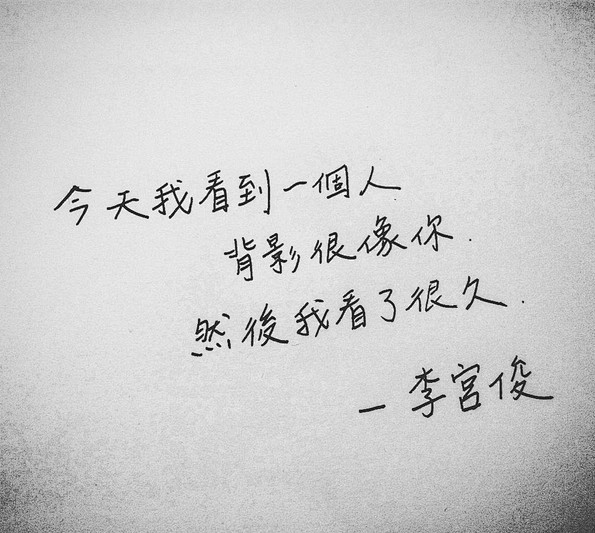 今天我看到一個人
背影很像你.
然後我看了很久.
－李宮俊